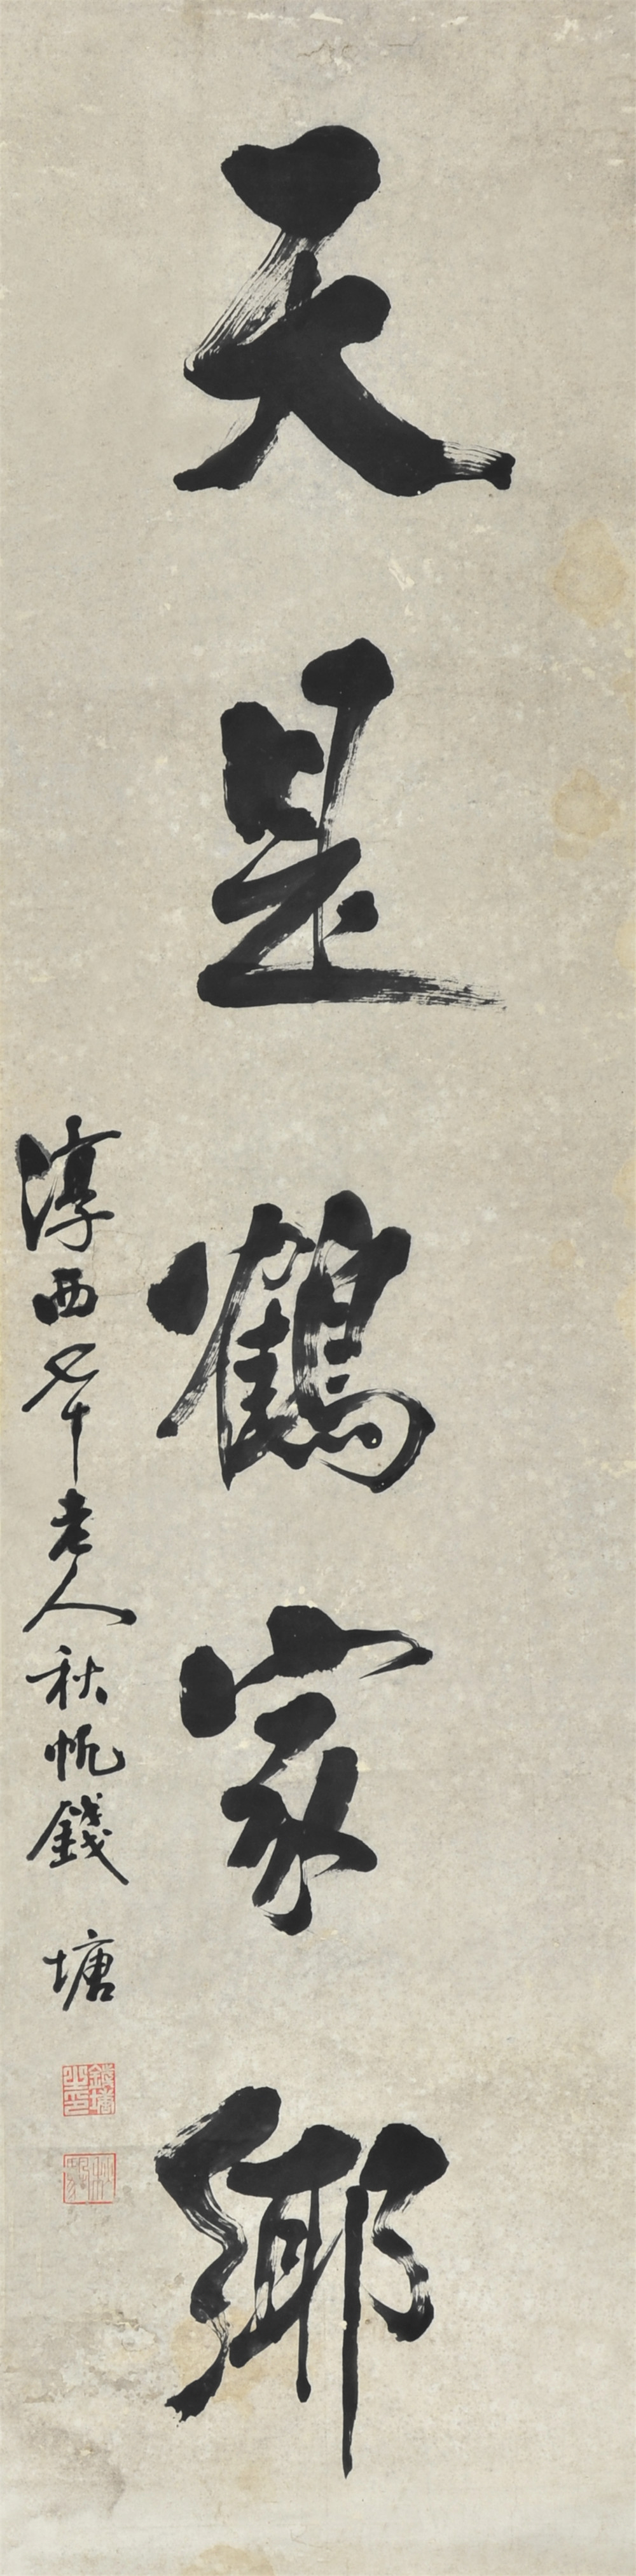 天是鶴家鄉
淳西七十老人秋帆錢塘